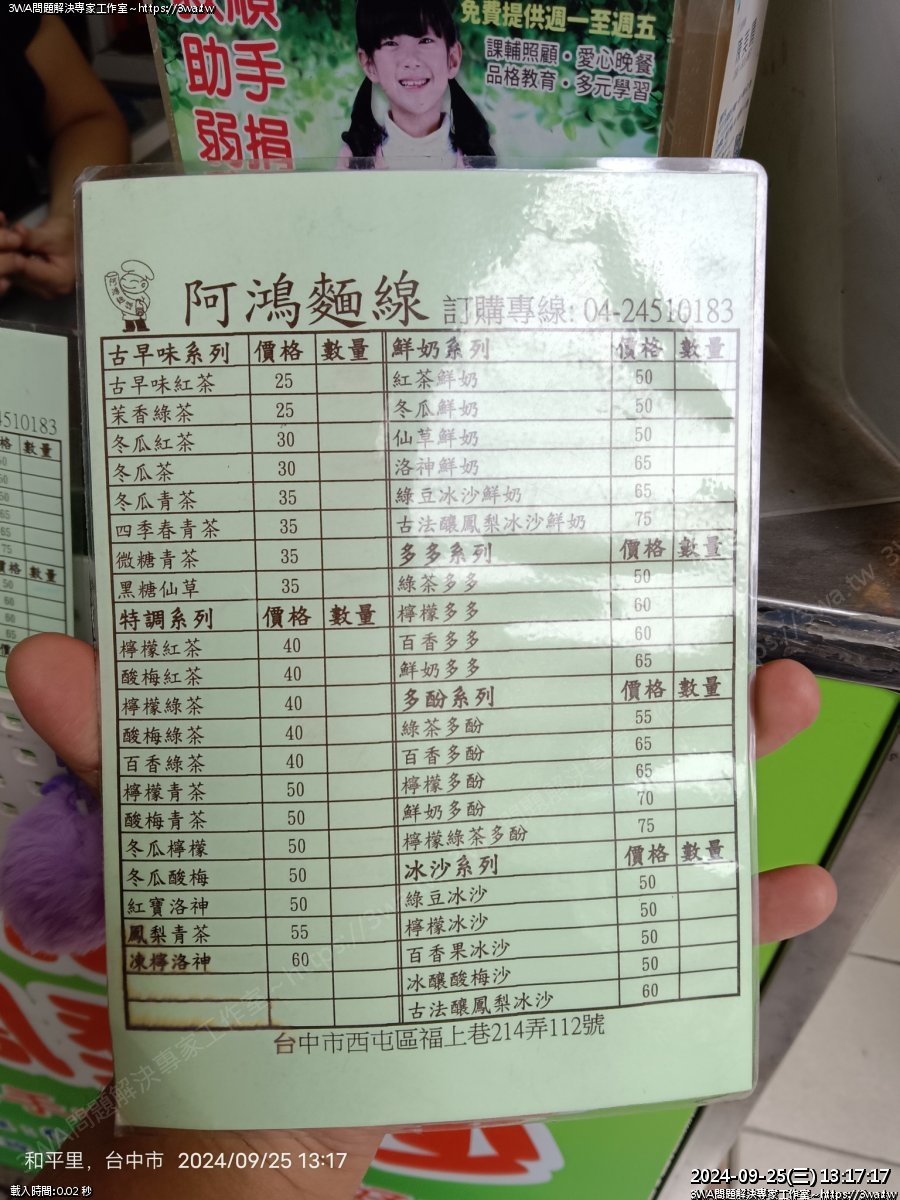 3WA問題解決專家工作室~https://3wa.tw
3WA問題解決專家工作室~https://3wa.tw
助手
弱捐
免費提供週一至週五
課輔照顧・愛心晚餐
品格教育・多元學習
阿鴻麵線 訂購專線: 04-24510183
古早味系列 價格 數量 鮮奶系列 價格 數量
古早味紅茶 25 紅茶鮮奶 50
茉香綠茶 25 冬瓜鮮奶 50
冬瓜紅茶 30 仙草鮮奶 50
冬瓜茶 30 洛神鮮奶 65
冬瓜青茶 35 綠豆冰沙鮮奶 65
四季春青茶 35 古法釀鳳梨冰沙鮮奶 75
微糖青茶 35 多多系列 價格 數量
黑糖仙草 35 綠茶多多 50
特調系列 價格 數量 檸檬多多 60
檸檬紅茶 40 百香多多 60
酸梅紅茶 40 鮮奶多多 65
檸檬綠茶 40 多酚系列 價格 數量
酸梅綠茶 40 綠茶多酚 55
百香綠茶 40 百香多酚 65
檸檬青茶 50 檸檬多酚 65
酸梅青茶 50 鮮奶多酚 70
冬瓜檸檬 50 檸檬綠茶多酚 75
冬瓜酸梅 50 冰沙系列 價格 數量
紅寶洛神 50 綠豆冰沙 50
鳳梨青茶 55 檸檬冰沙 50
凍檸洛神 60 百香果冰沙 50
冰釀酸梅沙 50
古法釀鳳梨冰沙 60
台中市西屯區福上巷214弄112號
4510183
格 數量
價格 數量
和平里，台中市 2024/09/25 13:17
載入時間:0.02 秒
2024-09-25(三) 13:17:17
3WA問題解決專家工作室~https://3wa.tw